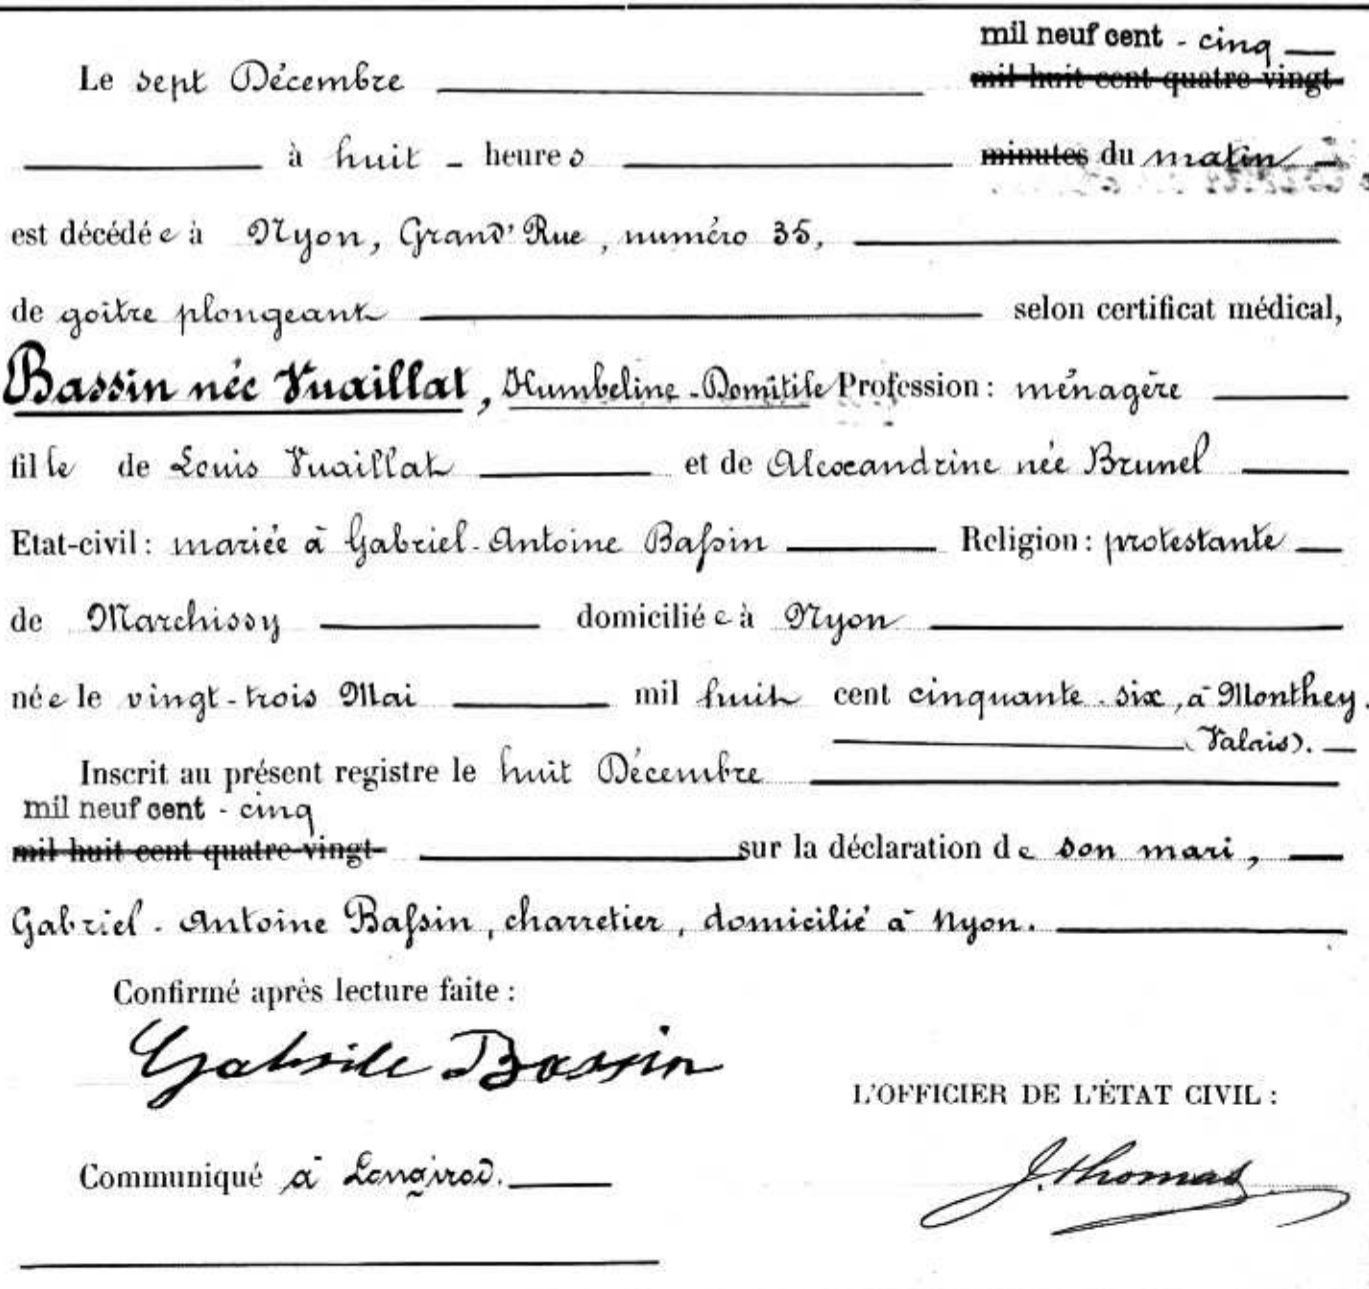 mil neuf cent - cinq
Le sept Décembre mil huit cent quatre-vingt-
à huit - heures minutes du matin
est décédée à Nyon, Grand'Rue, numéro 35,
de goître plongeant selon certificat médical,
Bassin née Vuaillat, Humbeline-Domitile Profession: ménagère
fille de Louis Vuaillat et de Alexandrine née Brunel
Etat-civil: mariée à Gabriel-Antoine Bassin Religion: protestante
de Marchissy domiciliée à Nyon
née le vingt-trois Mai mil huit cent cinquante-six, à Monthey.
(Valais).
Inscrit au présent registre le huit Décembre
mil neuf cent - cinq
mil huit cent quatre-vingt- sur la déclaration de son mari,
Gabriel-Antoine Bassin, charretier, domicilié à Nyon.
Confirmé après lecture faite:
Gabrile Bassin
L'OFFICIER DE L'ÉTAT CIVIL:
Communiqué à Longirod.
J. Thomas